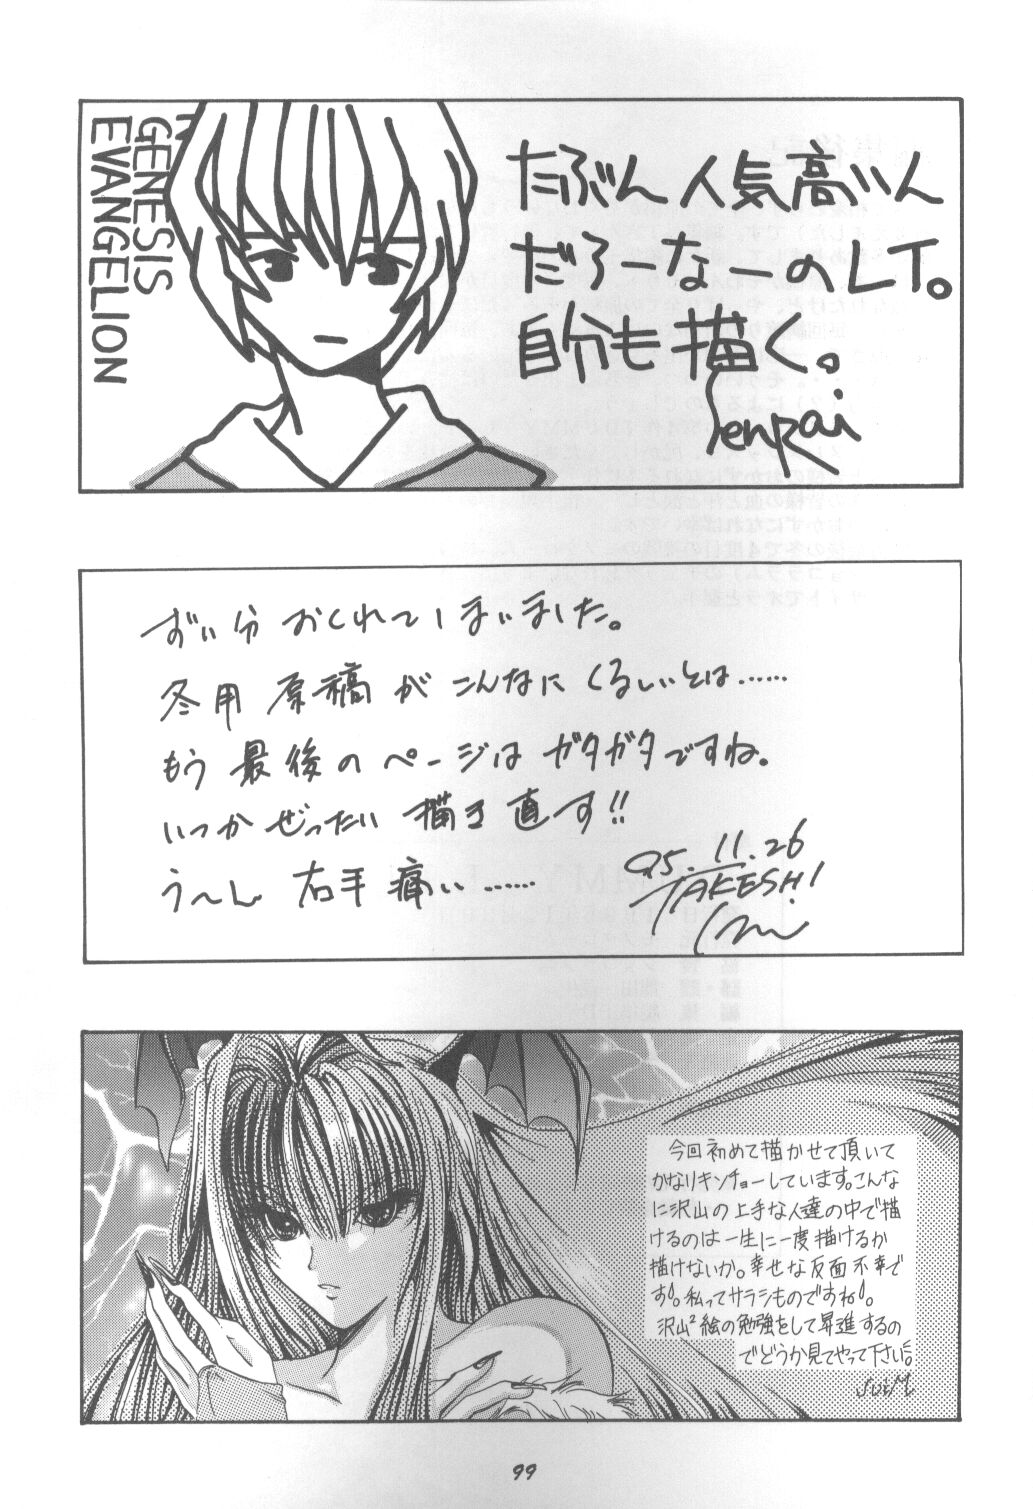 GENESIS
EVANGELION
たぶん人気高いん
だろーなーのLT。
自分も描く。
Senpai
ずい分おくれてしまいました。
冬用原稿がこんなにくるしいとは……
もう最後のページはガタガタですね。
いつかぜったい描き直す!!
う〜ん 右手痛い……
95.11.26
TAKESHI
今回初めて描かせて頂いて
かなりキンチョーしています。こんな
に沢山の上手な人達の中で描
けるのは一生に一度描けるか
描けないか。幸せな反面不幸で
す!。私ってサラシものですね!。
沢山²絵の勉強をして昇進するの
でどうか見てやって下さい。
99